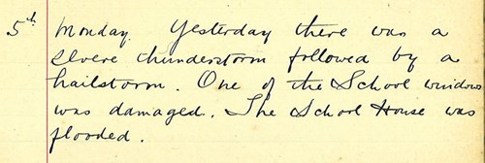 5th Monday. Yesterday there was a
severe thunderstorm followed by a
hailstorm. One of the School windows
was damaged. The School House was
flooded.